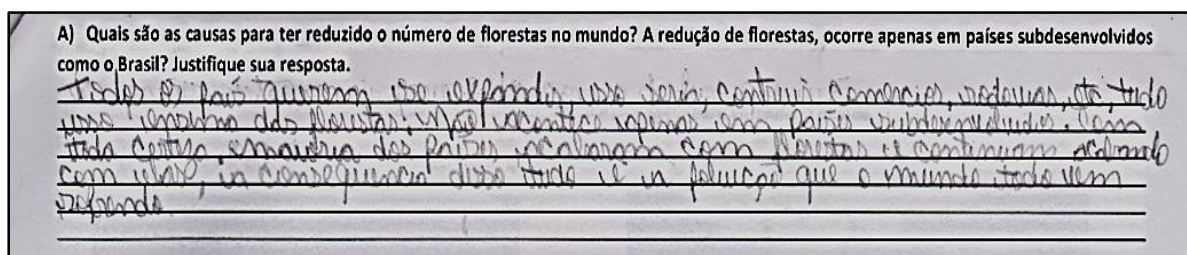 A) Quais são as causas para ter reduzido o número de florestas no mundo? A redução de florestas, ocorre apenas em países subdesenvolvidos
como o Brasil? Justifique sua resposta.
Todos os país querem se expandir, isso seria, contruir comercios, rodovias, etc, tudo
isso encima das florestas; Não acontece apenas em países subdesenvolvidos. Com
toda certeza, a maioria dos países acabaram com florestas e continuam acabando
com elas, a consequencia disso tudo é a poluição que o mundo todo vem
sofrendo.